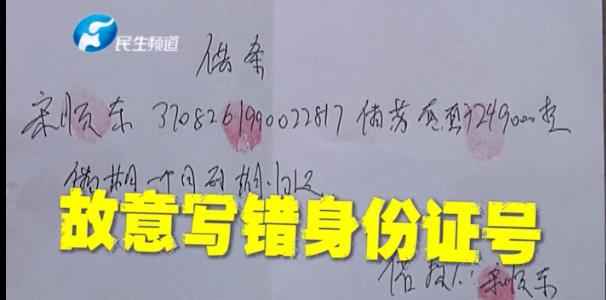 民生频道
借条
宋顺东 3708261990022817 借 249000 整
借期一个月到期归还
故意写错身份证号
借款人:宋顺东